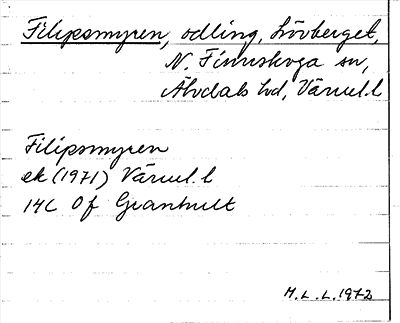 Filipsmyren, odling, Lövberget,
N. Finnskoga sn,
Älvdals hd, Värml. l
Filipsmyren
ek (1971) Värml. l
14C Of Granhult
M. L. L. 1972